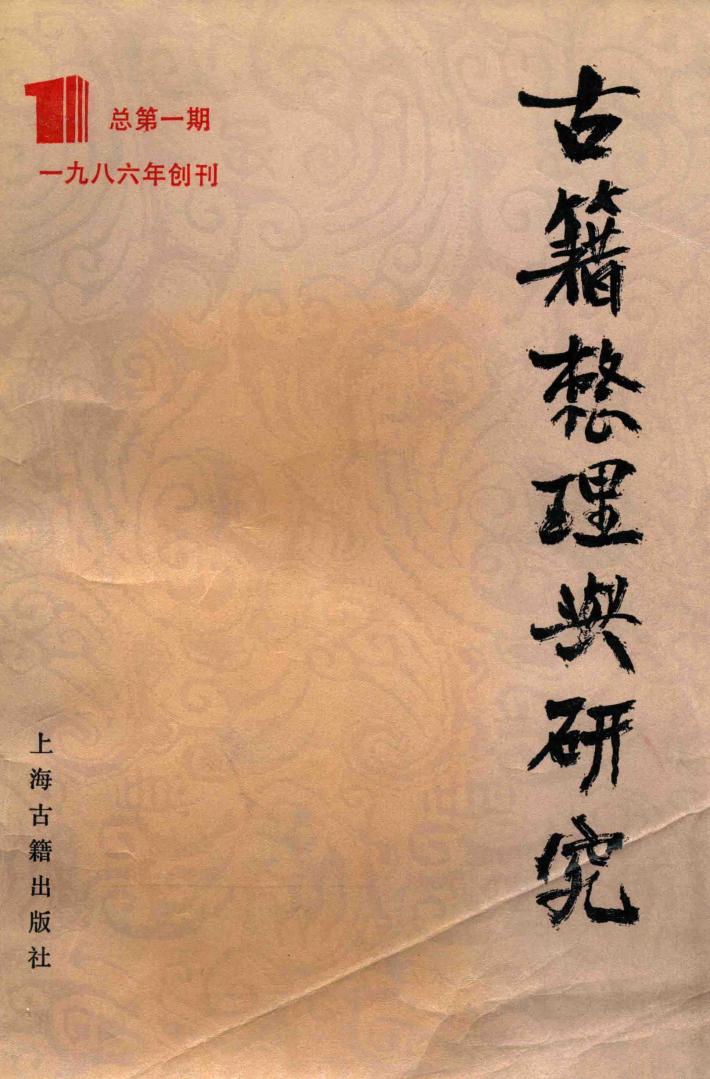 古籍整理與研究
1 总第一期
一九八六年创刊
上海古籍出版社